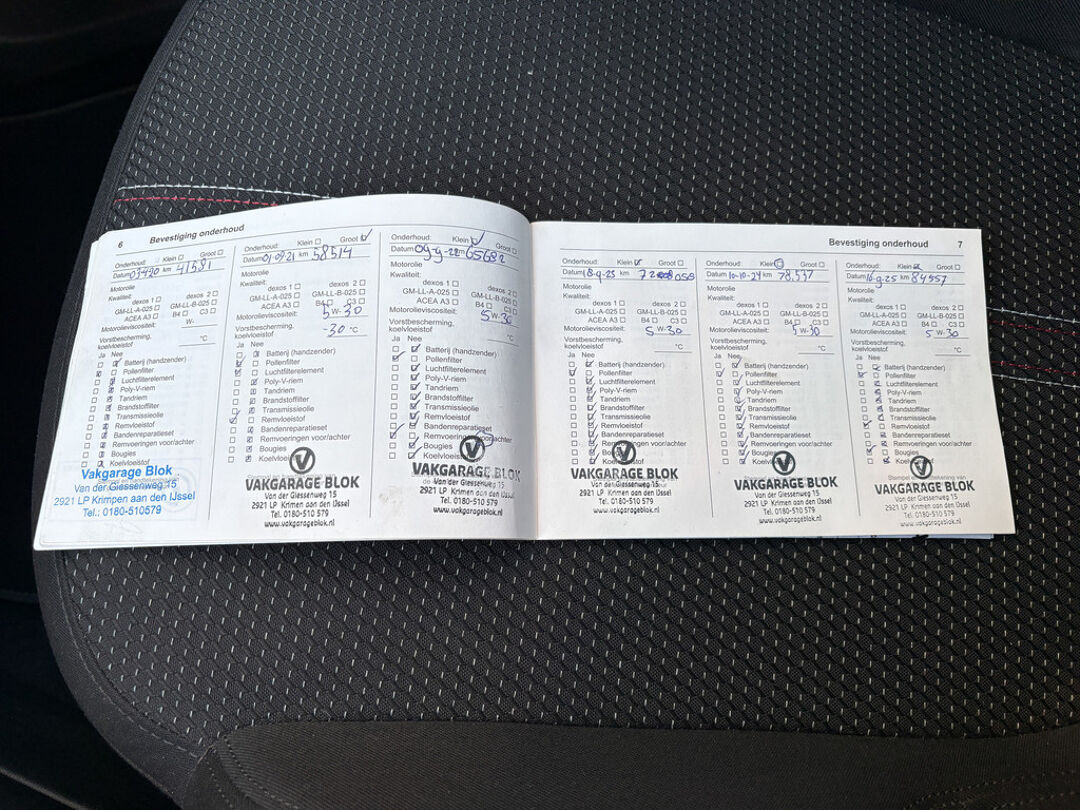 6 Bevestiging onderhoud
Onderhoud: Klein Groot
Datum km 41581
Motorolie
Kwaliteit:
dexos 1 dexos 2
GM-LL-A-025 GM-LL-B-025
ACEA A3 B4 C3
Motorolieviscositeit: W-
Vorstbescherming,
koelvloeistof °C
Ja Nee
Batterij (handzender)
Pollenfilter
Luchtfilterelement
Poly-V-riem
Tandriem
Brandstoffilter
Transmissieolie
Remvloeistof
Bandenreparatieset
Remvoeringen voor/achter
Bougies
Koelvloeistof
Vakgarage Blok
Van der Giessenweg 15
2921 LP Krimpen aan den IJssel
Tel.: 0180-510579
Onderhoud: Klein Groot
Datum 01-09-21 km 58514
Motorolie
Kwaliteit:
dexos 1 dexos 2
GM-LL-A-025 GM-LL-B-025
ACEA A3 B4 C3
Motorolieviscositeit: 5 W-30
Vorstbescherming,
koelvloeistof -30 °C
Ja Nee
Batterij (handzender)
Pollenfilter
Luchtfilterelement
Poly-V-riem
Tandriem
Brandstoffilter
Transmissieolie
Remvloeistof
Bandenreparatieset
Remvoeringen voor/achter
Bougies
VAKGARAGE BLOK
Van der Giessenweg 15
2921 LP Krimpen aan den IJssel
Tel. 0180-510 579
www.vakgarageblok.nl
Onderhoud: Klein Groot
Datum 09-9-22 km 65682
Motorolie
Kwaliteit:
dexos 1 dexos 2
GM-LL-A-025 GM-LL-B-025
ACEA A3 B4 C3
Motorolieviscositeit: 5 W-30
Vorstbescherming,
koelvloeistof °C
Ja Nee
Batterij (handzender)
Pollenfilter
Luchtfilterelement
Poly-V-riem
Tandriem
Brandstoffilter
Transmissieolie
Remvloeistof
Bandenreparatieset
Remvoeringen voor/achter
Bougies
VAKGARAGE BLOK
Van der Giessenweg 15
2921 LP Krimpen aan den IJssel
Tel. 0180-510 579
www.vakgarageblok.nl
Bevestiging onderhoud 7
Onderhoud: Klein Groot
Datum 18-9-23 km
Motorolie
Kwaliteit:
dexos 1 dexos 2
GM-LL-A-025 GM-LL-B-025
ACEA A3 B4 C3
Motorolieviscositeit: 5 W-30
Vorstbescherming,
koelvloeistof °C
Ja Nee
Batterij (handzender)
Pollenfilter
Luchtfilterelement
Poly-V-riem
Tandriem
Brandstoffilter
Transmissieolie
Remvloeistof
Bandenreparatieset
Remvoeringen voor/achter
VAKGARAGE BLOK
Van der Giessenweg 15
2921 LP Krimpen aan den IJssel
Tel. 0180-510 579
www.vakgarageblok.nl
Onderhoud: Klein Groot
Datum 10-10-24 km 78.537
Motorolie
Kwaliteit:
dexos 1 dexos 2
GM-LL-A-025 GM-LL-B-025
ACEA A3 B4 C3
Motorolieviscositeit: 5 W-30
Vorstbescherming,
koelvloeistof °C
Ja Nee
Batterij (handzender)
Pollenfilter
Luchtfilterelement
Poly-V-riem
Tandriem
Brandstoffilter
Transmissieolie
Remvloeistof
Bandenreparatieset
Remvoeringen voor/achter
Bougies
VAKGARAGE BLOK
Van der Giessenweg 15
2921 LP Krimpen aan den IJssel
Tel. 0180-510 579
www.vakgarageblok.nl
Onderhoud: Klein Groot
Datum 16-9-25 km 84557
Motorolie
Kwaliteit:
dexos 1 dexos 2
GM-LL-A-025 GM-LL-B-025
ACEA A3 B4 C3
Motorolieviscositeit: 5 W 30
Vorstbescherming,
koelvloeistof °C
Ja Nee
Batterij (handzender)
Pollenfilter
Luchtfilterelement
Poly-V-riem
Tandriem
Brandstoffilter
Transmissieolie
Remvloeistof
Bandenreparatieset
Remvoeringen voor/achter
Bougies
Koelvloeistof
VAKGARAGE BLOK
Van der Giessenweg 15
2921 LP Krimpen aan den IJssel
Tel. 0180-510 579
www.vakgarageblok.nl